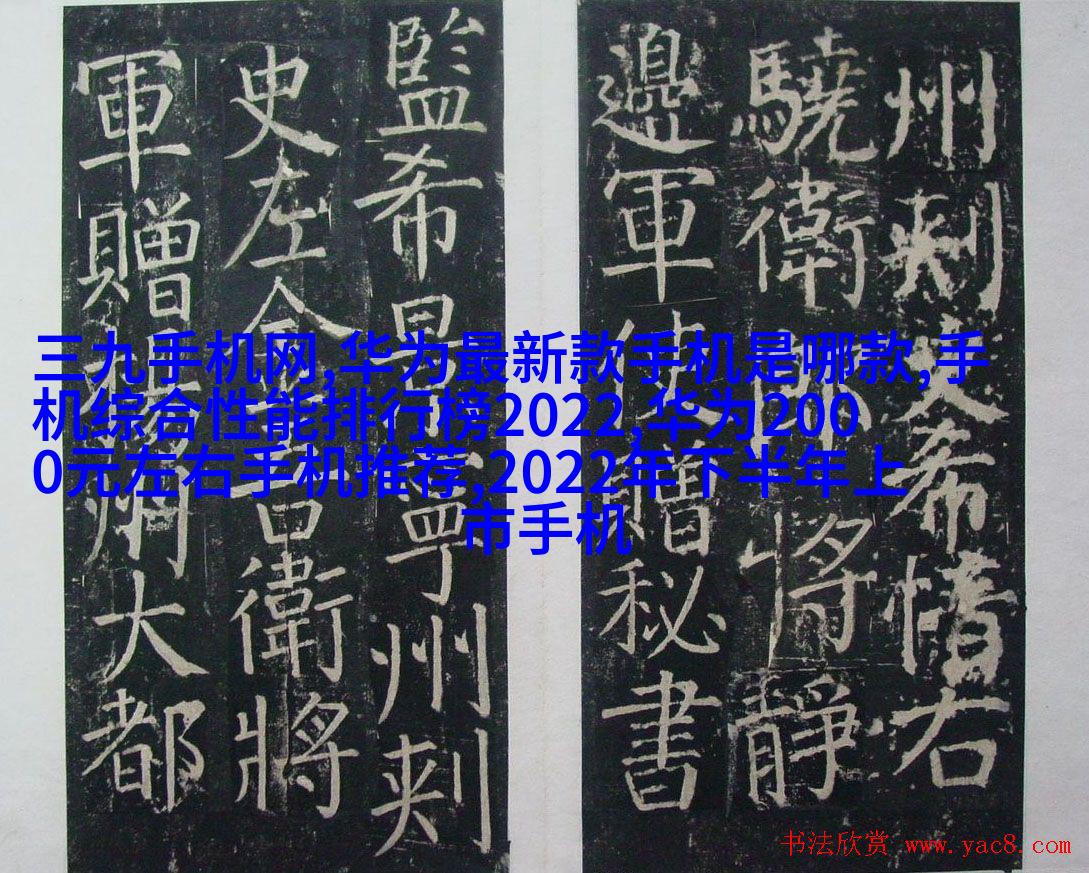 三九手机网,华为最新款手机是哪款,手
机综合性能排行榜2022,华为200
0元左右手机推荐,2022年下半年上
市手机
州刺史希右
驍衛將靜
邊軍使贈秘書
監希景寧州刺
史左金吾衛將
軍贈州大都
书法欣赏 www.yac8.com